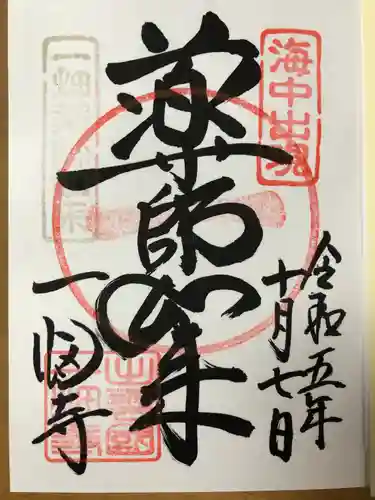 海中出現
令和五年
十月七日
薬師如来
一畑寺